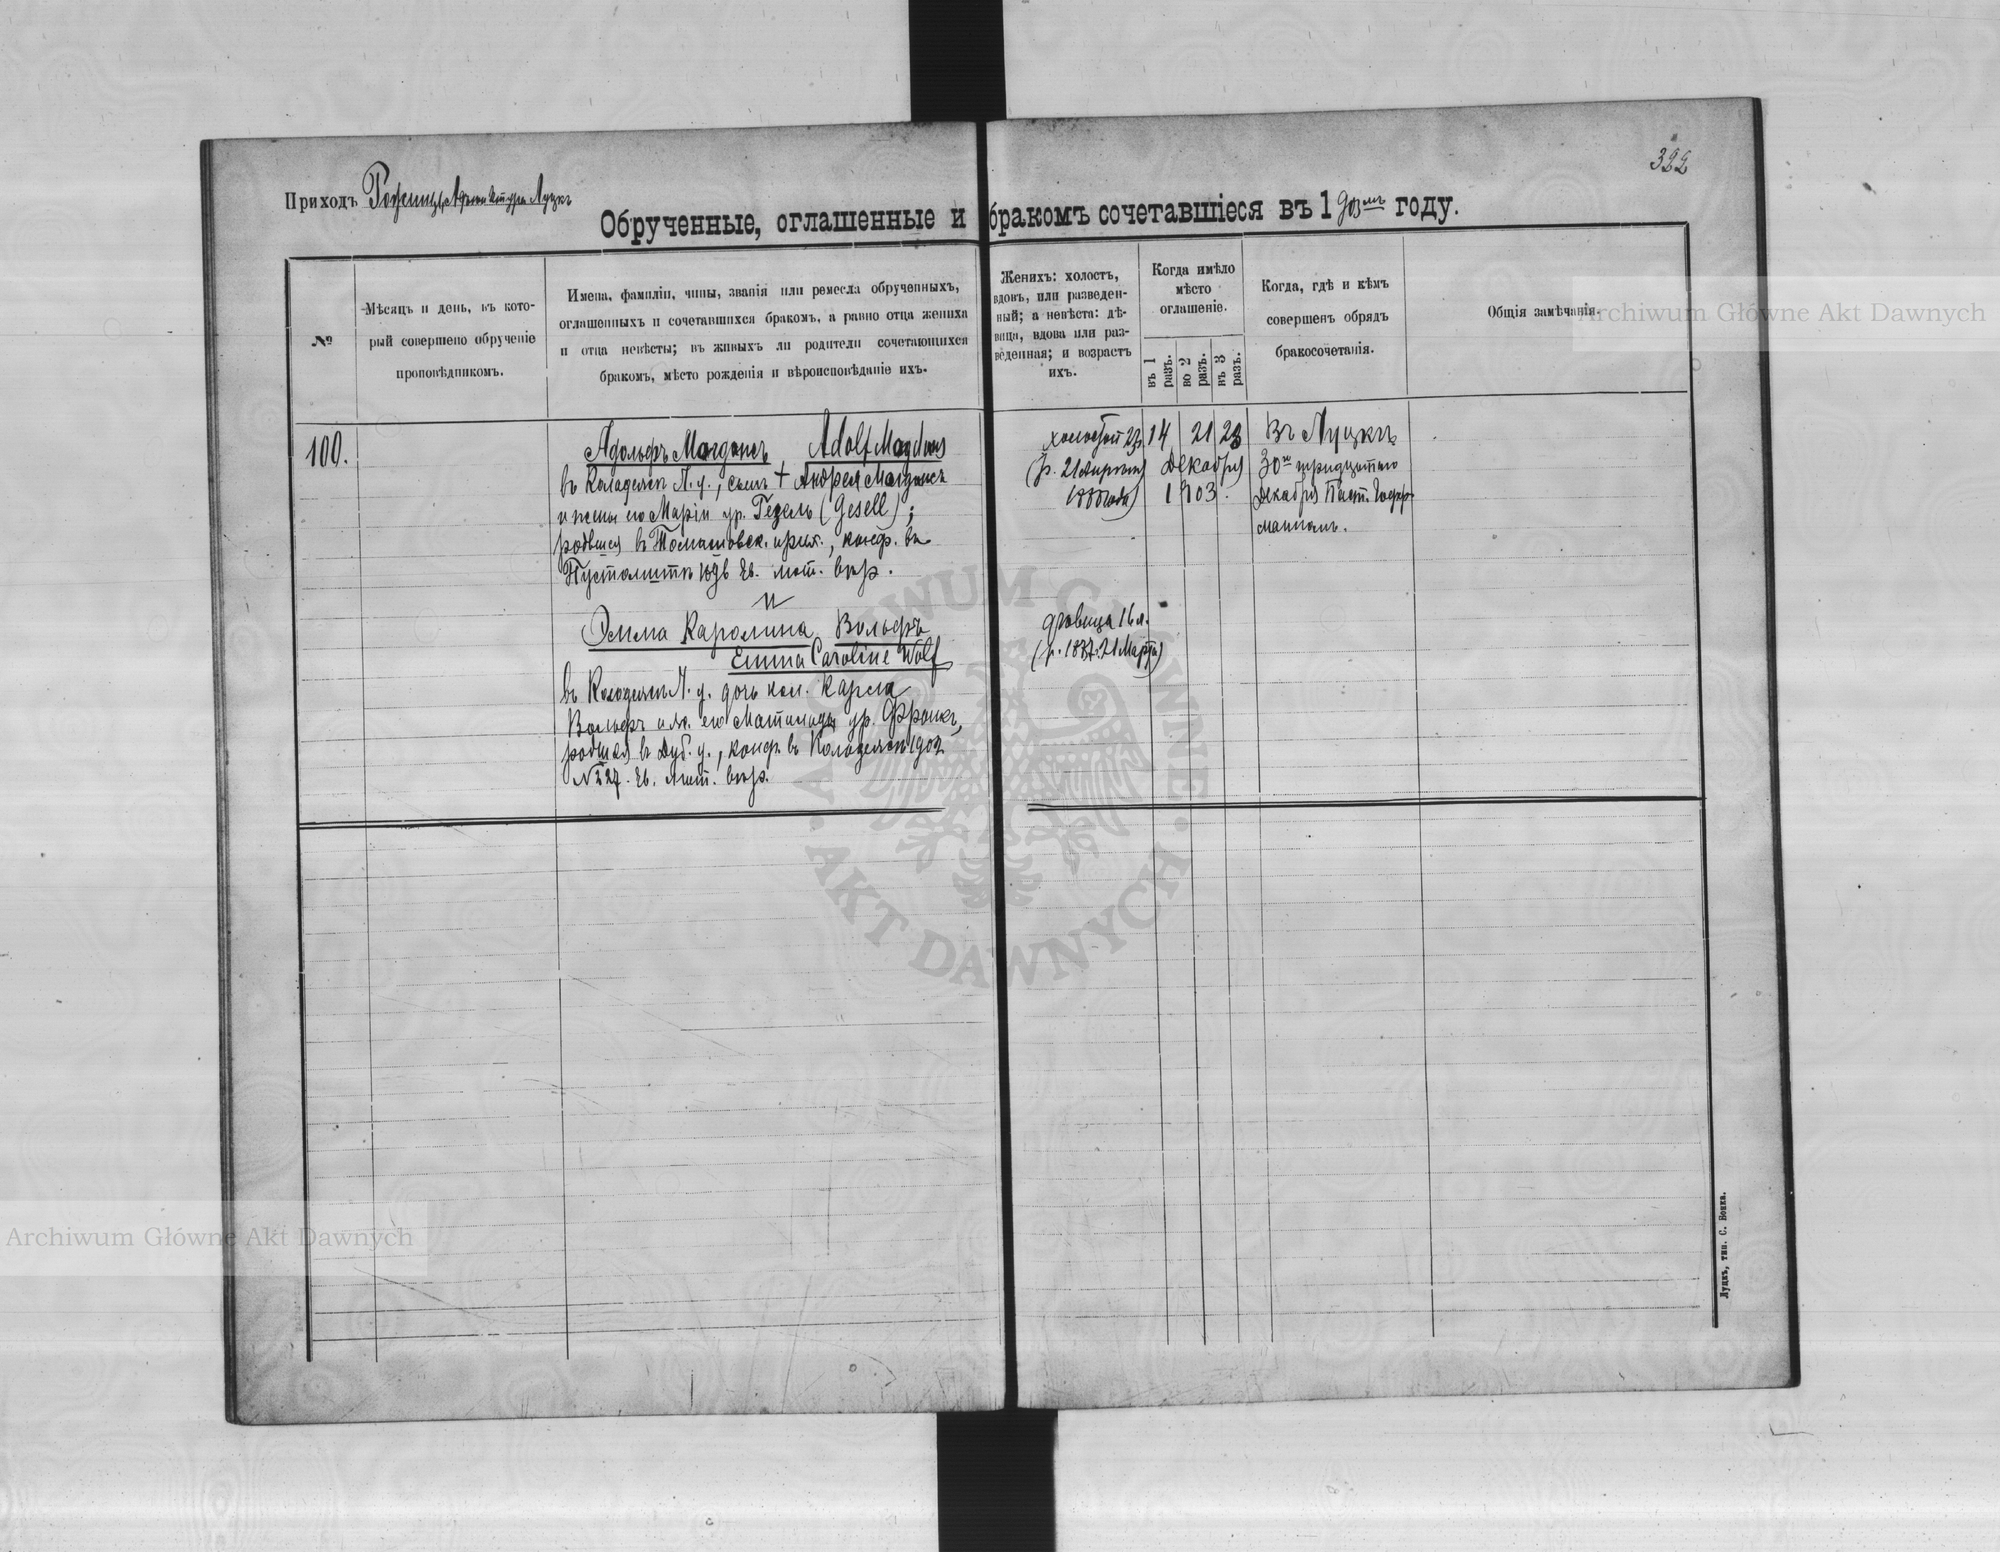 322
Приходъ Рожище, Адъюнктура Луцкъ
Обрученные, оглашенные и бракомъ сочетавшіеся въ 1903мъ году.
№
Мѣсяцъ и день, въ кото-
рый совершено обрученіе
проповѣдникомъ.
Имена, фамиліи, чины, званія или ремесла обрученныхъ,
оглашенныхъ и сочетавшихся бракомъ, а равно отца жениха
и отца невѣсты; въ живыхъ ли родители сочетающихся
бракомъ, мѣсто рожденія и вѣроисповѣданіе ихъ.
Женихъ: холостъ,
вдовъ, или разведен-
ный; а невѣста: дѣ-
вица, вдова или раз-
веденная; и возрастъ
ихъ.
Когда имѣло
мѣсто
оглашеніе.
въ 1 разъ.
во 2 разъ.
въ 3 разъ.
Когда, гдѣ и кѣмъ
совершенъ обрядъ
бракосочетанія.
Общія замѣчанія.
100.
Адольфъ Магдансъ Adolf Magdans
въ Колодезяхъ Л. у., сынъ + Андрея Магдансъ
и жены его Маріи ур. Гезель (Gesell);
родвшся въ Томашовск. прих., конф. въ
ев. лют. вѣр.
и
Эмма Каролина Вольфъ
Emma Caroline Wolf
въ Колодезяхъ Л. у. дочь кол. Карла
Вольфъ и ж. его Матильды ур. Франкъ,
родшся въ Дуб. у., конф. въ Колодезяхъ 1902
№ 227. Ев. лют. вѣр.
холостой 23
(р. 21 Апрѣля
1880 года)
14 21 28
Декабря
1903.
Въ Луцкѣ
30го тридцатаго
Декабря Паст. Гофф-
маномъ.
дѣвица 16 л.
(р. 1887. 21 Марта)
Луцкъ, тип. С. Бокка.
Archiwum Główne Akt Dawnych
Archiwum Główne Akt Dawnych
ARCHIWUM GŁÓWNE AKT DAWNYCH